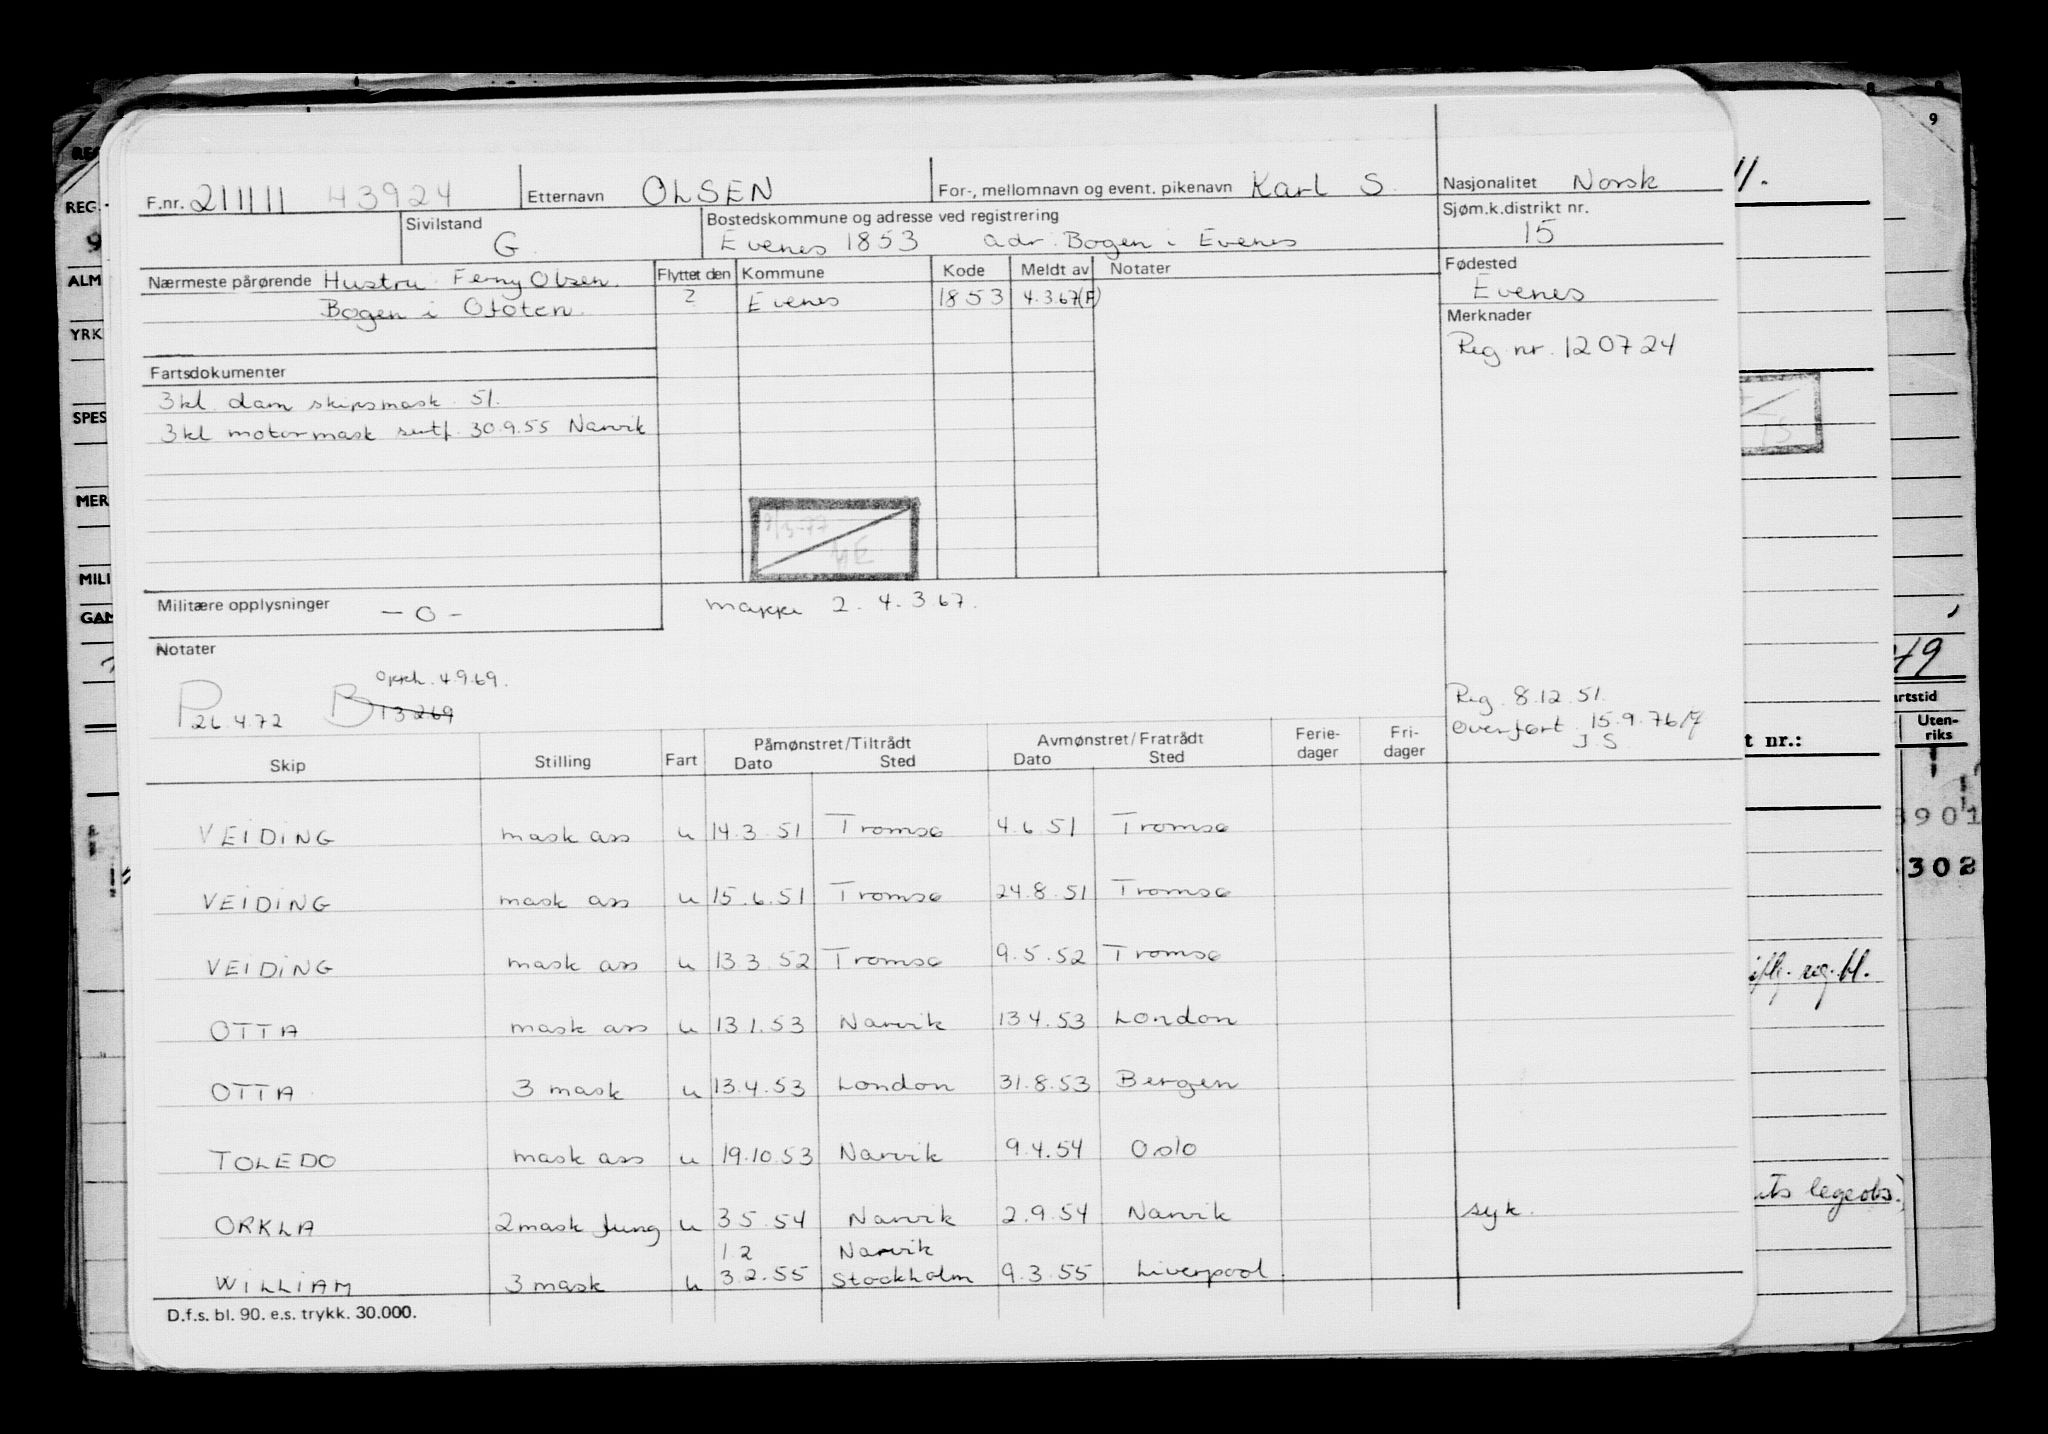 F.nr. 211111 43924 Etternavn OLSEN For-, mellomnavn og event. pikenavn Karl S. Nasjonalitet Norsk
Sivilstand G. Bostedskommune og adresse ved registrering Sjøm.k.distrikt nr.
Evenes 1853 adr: Bogen i Evenes 15
Nærmeste pårørende Hustru Ferny Olsen. Flyttet den Kommune Kode Meldt av Notater Fødested
Bogen i Ofoten. ? Evenes 1853 4.3.67(F) Evenes
Merknader
Reg. nr. 120724
Fartsdokumenter
3kl. dam skipsmask. 51.
3kl motormask sertf. 30.9.55 Narvik
Militære opplysninger — 0 — mappe 2. 4.3.67.
Notater
Opph. 4.9.69.
P 26.4.72 B 13269
Reg. 8.12.51.
Overført 15.9.76
J.S.
Skip Stilling Fart Påmønstret/Tiltrådt Avmønstret/Fratrådt Ferie-dager Fri-dager
Dato Sted Dato Sted
VEIDING mask ass u 14.3.51 Tromsø 4.6.51 Tromsø
VEIDING mask ass u 15.6.51 Tromsø 24.8.51 Tromsø
VEIDING mask ass u 13.3.52 Tromsø 9.5.52 Tromsø
OTTA mask ass u 13.1.53 Narvik 13.4.53 London
OTTA 3 mask u 13.4.53 London 31.8.53 Bergen
TOLEDO mask ass u 19.10.53 Narvik 9.4.54 Oslo
ORKLA 2mask fung u 3.5.54 Narvik 2.9.54 Narvik syk.
1.2 Narvik
WILLIAM 3 mask u 3.2.55 Stockholm 9.3.55 Liverpool.
D.f.s. bl. 90. e.s. trykk. 30.000.
REG.
ALM
YRK
SPES
MER
MILI
GAM
9
49
artstid
Uten-
riks
t nr.:
3901
302
reg. bl.
legeobs.